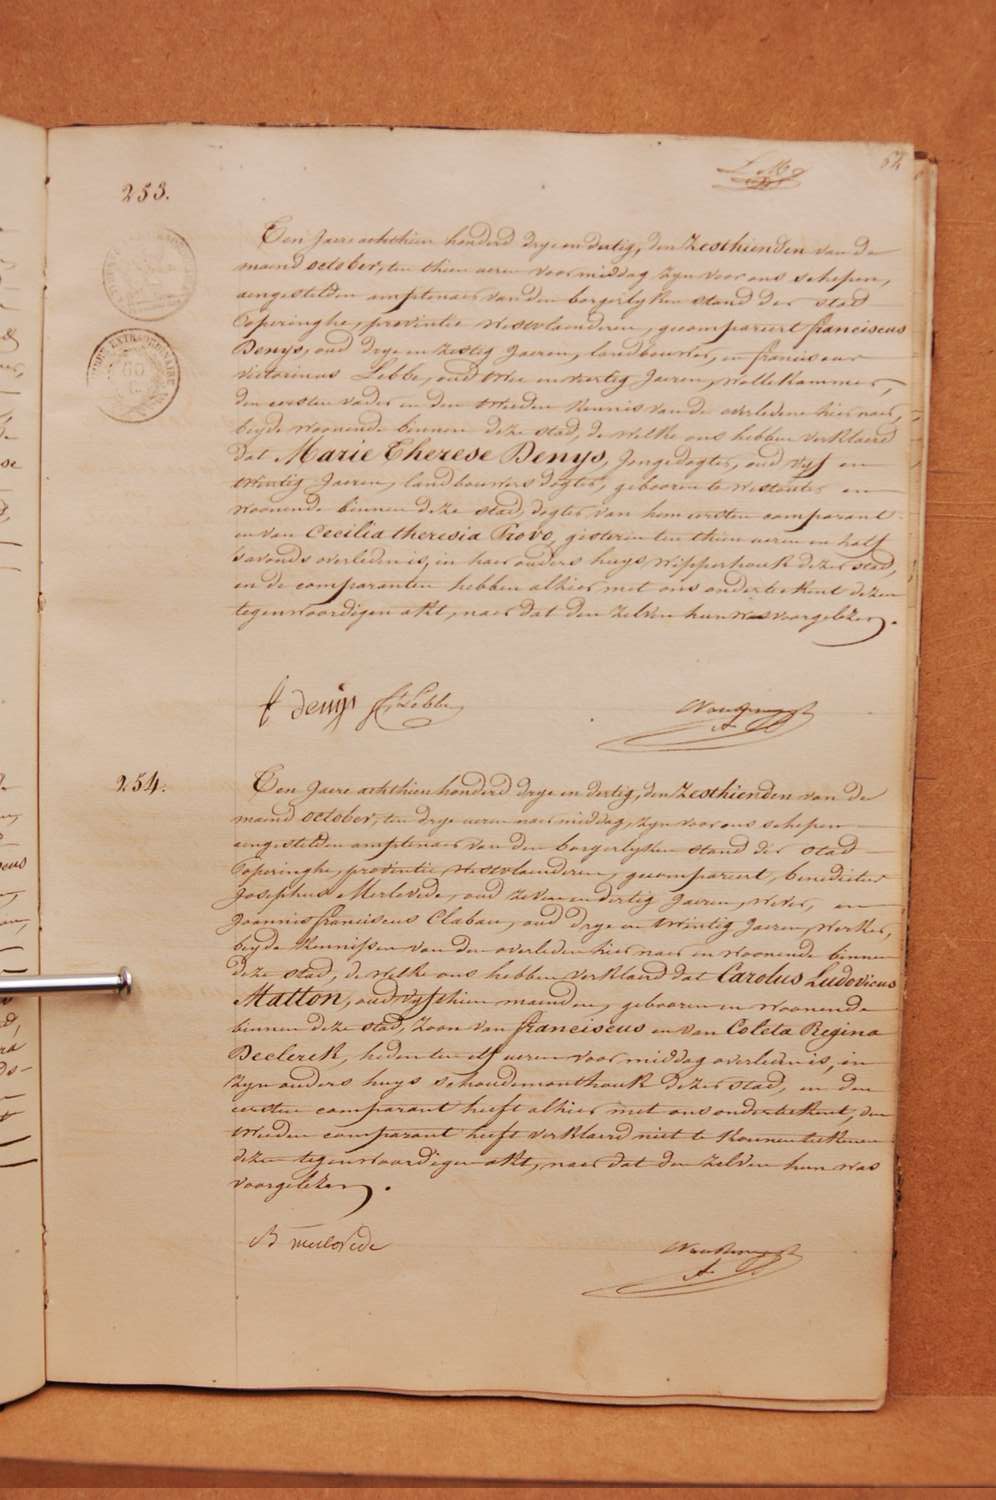 62
253.
Een Jaere achthien honderd drye en dertig, den Zesthienden van de
maend october, ten thien ueren voormiddag zyn voor ons schepen,
aengestelden amptenaer van den borgerlyken stand der stad
Poperinghe, provintie Westvlaenderen, gecompareert franciscus
Denys, oud drye en Zestig Jaeren, landbouwer, en franciscus
Victorinus Lebbe, oud twee en veertig Jaeren, wollekammer,
den eersten vader en den tweeden Kennis van de overledene hier naer,
beyde woonende binnen deze stad, de welke ons hebben verklaerd
dat Marie Therese Denys, Jongedogter, oud vyf en
twintig Jaeren, landbouwers dogter, gebooren te Westouter en
woonende binnen deze stad, dogter van hem eersten comparant
en van Cecilia theresia Provo, gisteren ten thien ueren en half
s'avonds overleden is, in haer ouders huys, Wipperhouk dezer stad,
en de comparanten hebben alhier met ons onderteekent dezen
tegenwoordigen akt, naer dat den zelven hun was voorgelezen.
f denys f Lebbe
254.
Een Jaere achthien honderd drye en dertig, den Zesthienden van de
maend october, ten drye ueren naermiddag, zyn voor ons schepen
aengestelden amptenaer van den borgerlyken stand der stad
Poperinghe, provintie Westvlaenderen, gecompareert, benedictus
Josephus Merlevede, oud zeven en dertig Jaeren, wever, en
Joannis franciscus Clabau, oud drye en twintig Jaeren, werker,
beyde Kennissen van den overleden hier naer en woonende binnen
deze stad, de welke ons hebben verklaerd dat Carolus Ludovicus
Matton, oud vyfthien maenden, gebooren en woonende
binnen deze stad, Zoon van franciscus en van Coleta Regina
Declerck, heden ten elf ueren voormiddag overleden is, in
zyn ouders huys schoudemonthouk dezer stad, en den
eersten comparant heeft alhier met ons onderteekent, den
tweeden comparant heeft verklaerd niet te konnen teekenen
dezen tegenwoordigen akt, naer dat den zelven hun was
voorgelezen.
B merlevede